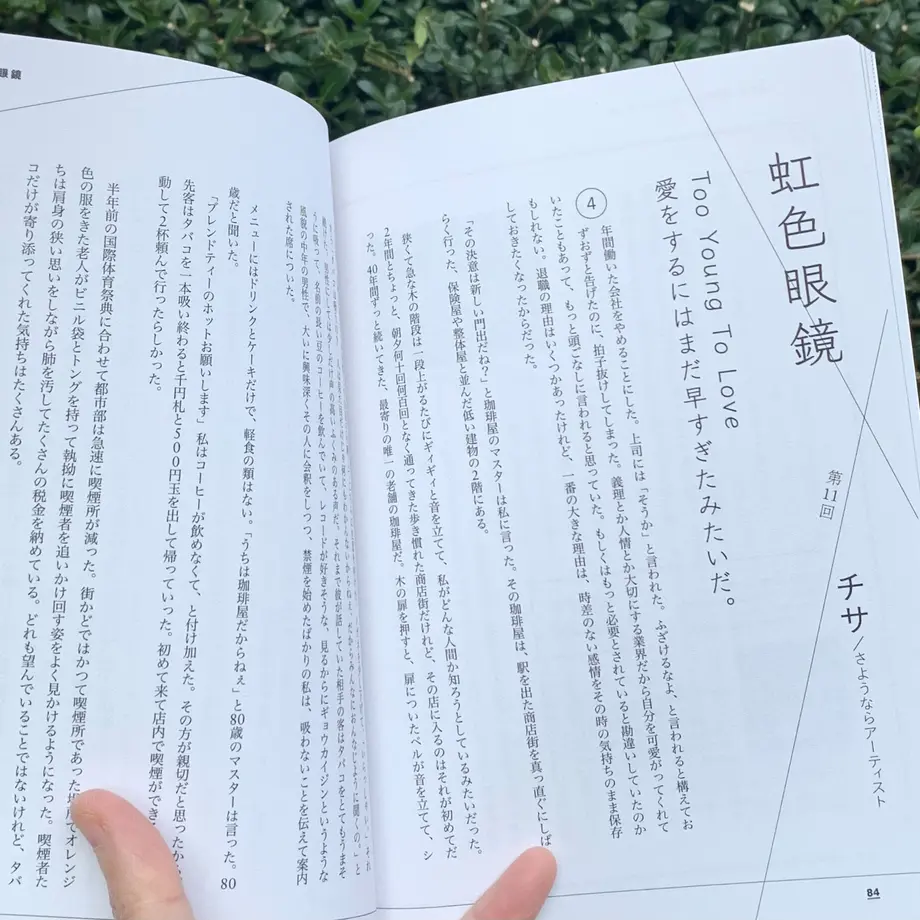 虹色眼鏡
第11回
チサ/さようならアーティスト
Too Young To Love
愛をするにはまだ早すぎたみたいだ。
④年間働いた会社をやめることにした。上司には「そうか」と言われた。ふざけるなよ、と言われると構えてお
ずおずと告げたのに、拍子抜けしてしまった。義理とか人情とか大切にする業界だから自分を可愛がってくれて
いたこともあって、もっと頭ごなしに言われると思っていた。もしくはもっと必要とされていると勘違いしていたのか
もしれない。退職の理由はいくつかあったけれど、一番の大きな理由は、時差のない感情をその時の気持ちのまま保存
しておきたくなったからだった。
「その決意は新しい門出だね?」と珈琲屋のマスターは私に言った。その珈琲屋は、駅を出た商店街を真っ直ぐにしば
らく行った、保険屋や整体屋と並んだ低い建物の2階にある。
狭くて急な木の階段は一段上がるたびにギィギィと音を立てて、私がどんな人間か知ろうとしているみたいだった。
2年間とちょっと、朝夕何十回何百回となく通ってきた歩き慣れた商店街だけれど、その店に入るのはそれが初めてだ
った。40年間ずっと続いてきた、最寄りの唯一の老舗の珈琲屋だ。木の扉を押すと、扉についたベルが音を立てて、シ
うに吸って、名前の長い豆のコーヒーを飲んでいて、レコードが好きそうな、見るからにギョウカイジンというような
風貌の中年の男性で、大いに興味深くその人に会釈をしつつ、禁煙を始めたばかりの私は、吸わないことを伝えて案内
された席についた。
メニューにはドリンクとケーキだけで、軽食の類はない。「うちは珈琲屋だからねぇ」と80歳のマスターは言った。80
歳だと聞いた。
「ブレンドティーのホットお願いします」私はコーヒーが飲めなくて、と付け加えた。その方が親切だと思ったか
先客はタバコを一本吸い終わると千円札と500円玉を出して帰っていった。初めて来て店内で喫煙ができ
動して2杯頼んで行ったらしかった。
半年前の国際体育祭典に合わせて都市部は急速に喫煙所が減った。街かどではかつて喫煙所であった場所でオレンジ
色の服をきた老人がビニル袋とトングを持って執拗に喫煙者を追いかけ回す姿をよく見かけるようになった。喫煙者た
ちは肩身の狭い思いをしながら肺を汚してたくさんの税金を納めている。どれも望んでいることではないけれど、タバ
コだけが寄り添ってくれた気持ちはたくさんある。
眼鏡
84